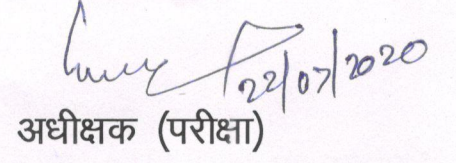 22/07/2020
अधीक्षक (परीक्षा)